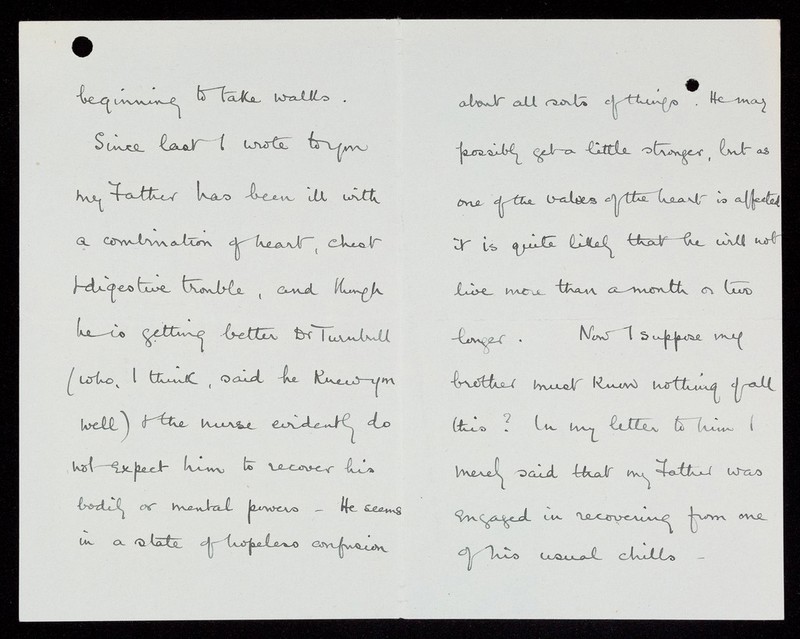 beginning to take walks.
Since last I wrote to you
my Father has been ill with
a combination of heart, chest
& digestive trouble, and though
he is getting better Dr Turnbull
(who, I think, said he knew you
well) & the nurse evidently do
not expect him to recover his
bodily or mental powers - He seems
in a state of hopeless confusion
about all sorts of things. He may
possibly get a little stronger, but as
one of the valves of the heart is affected
it is quite likely that he will not
live more than a month or two
longer. Now I suppose my
brother must know nothing of all
this? In my letter to him I
merely said that my Father was
engaged in recovering from one
of his usual chills -